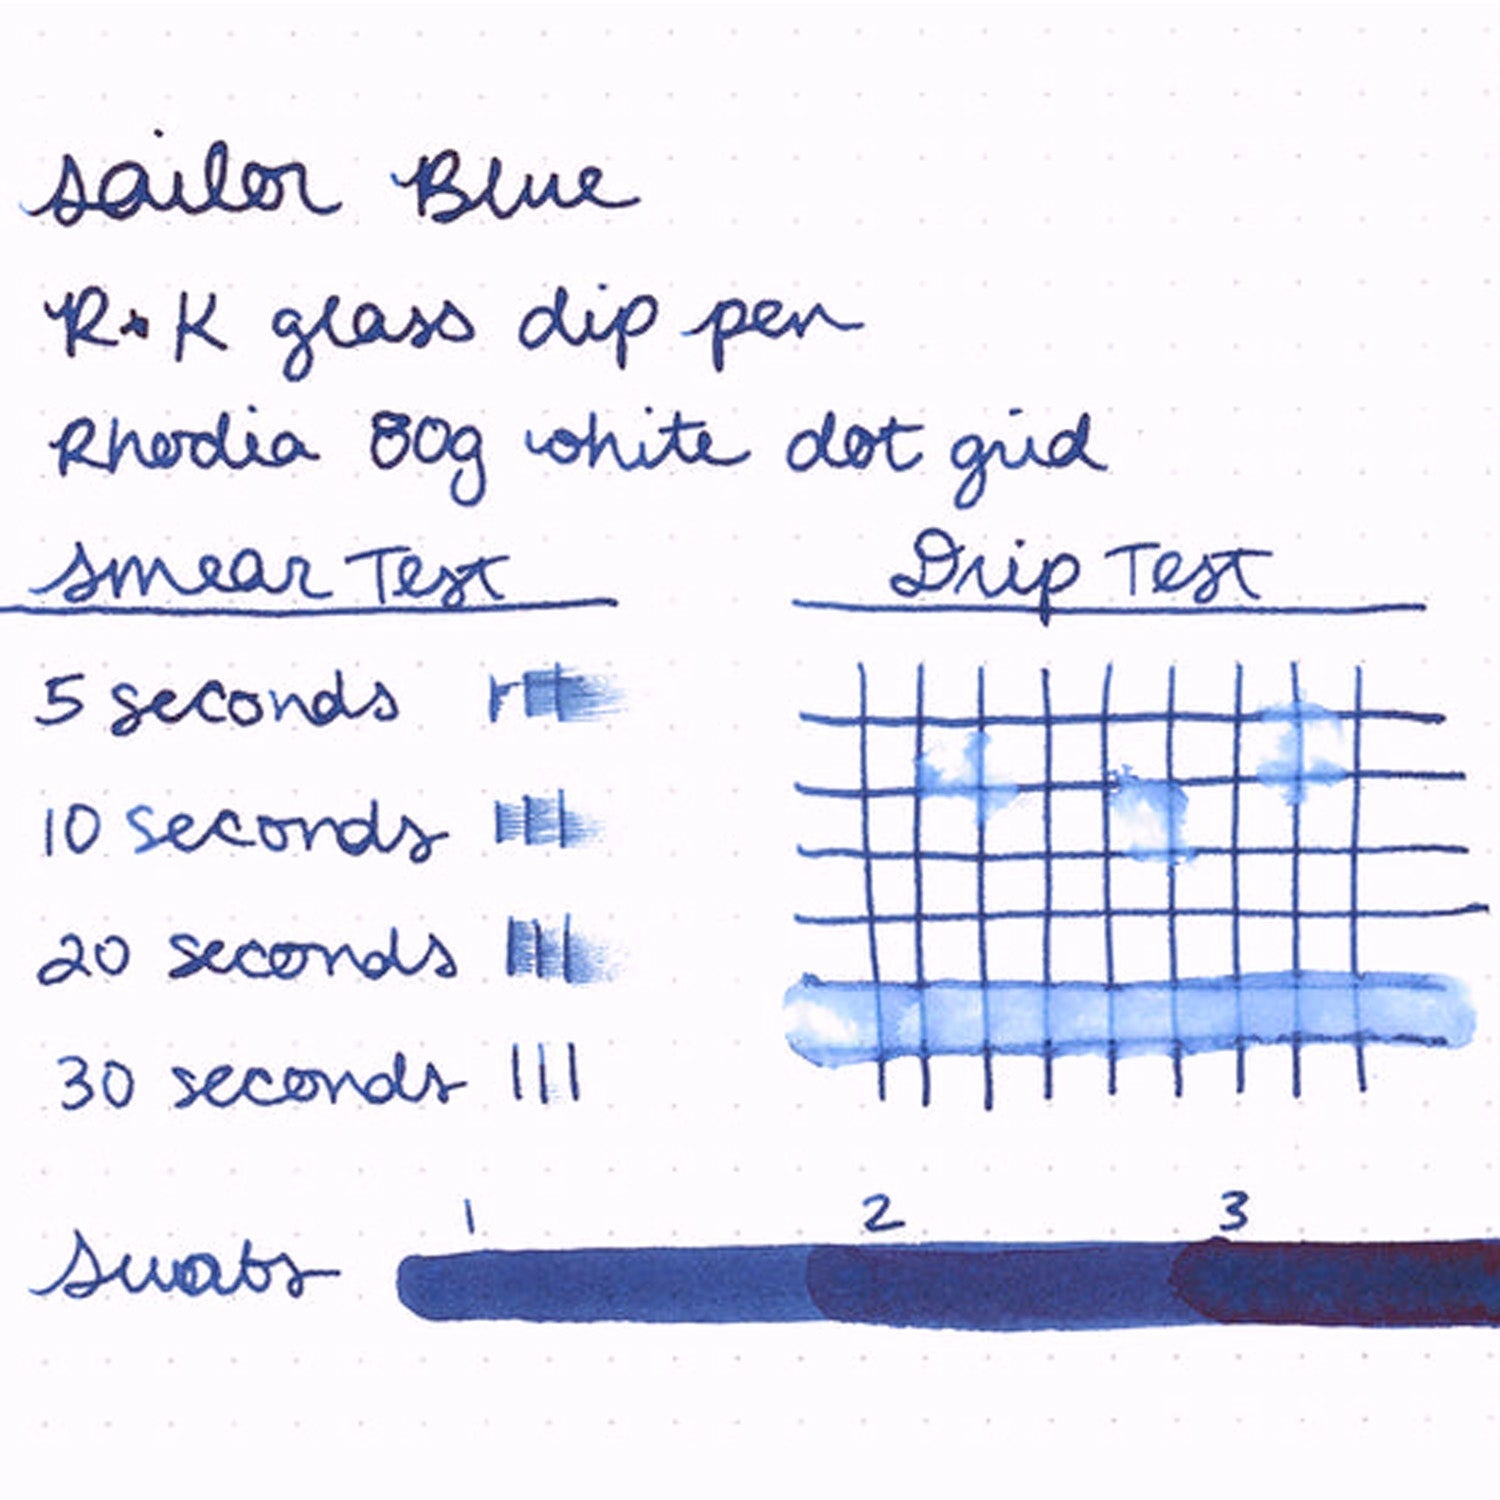 Sailor Blue
R+K glass dip pen
Rhodia 80g white dot grid
Smear Test
Drip Test
5 seconds
10 seconds
20 seconds
30 seconds
1 2 3
Swabs